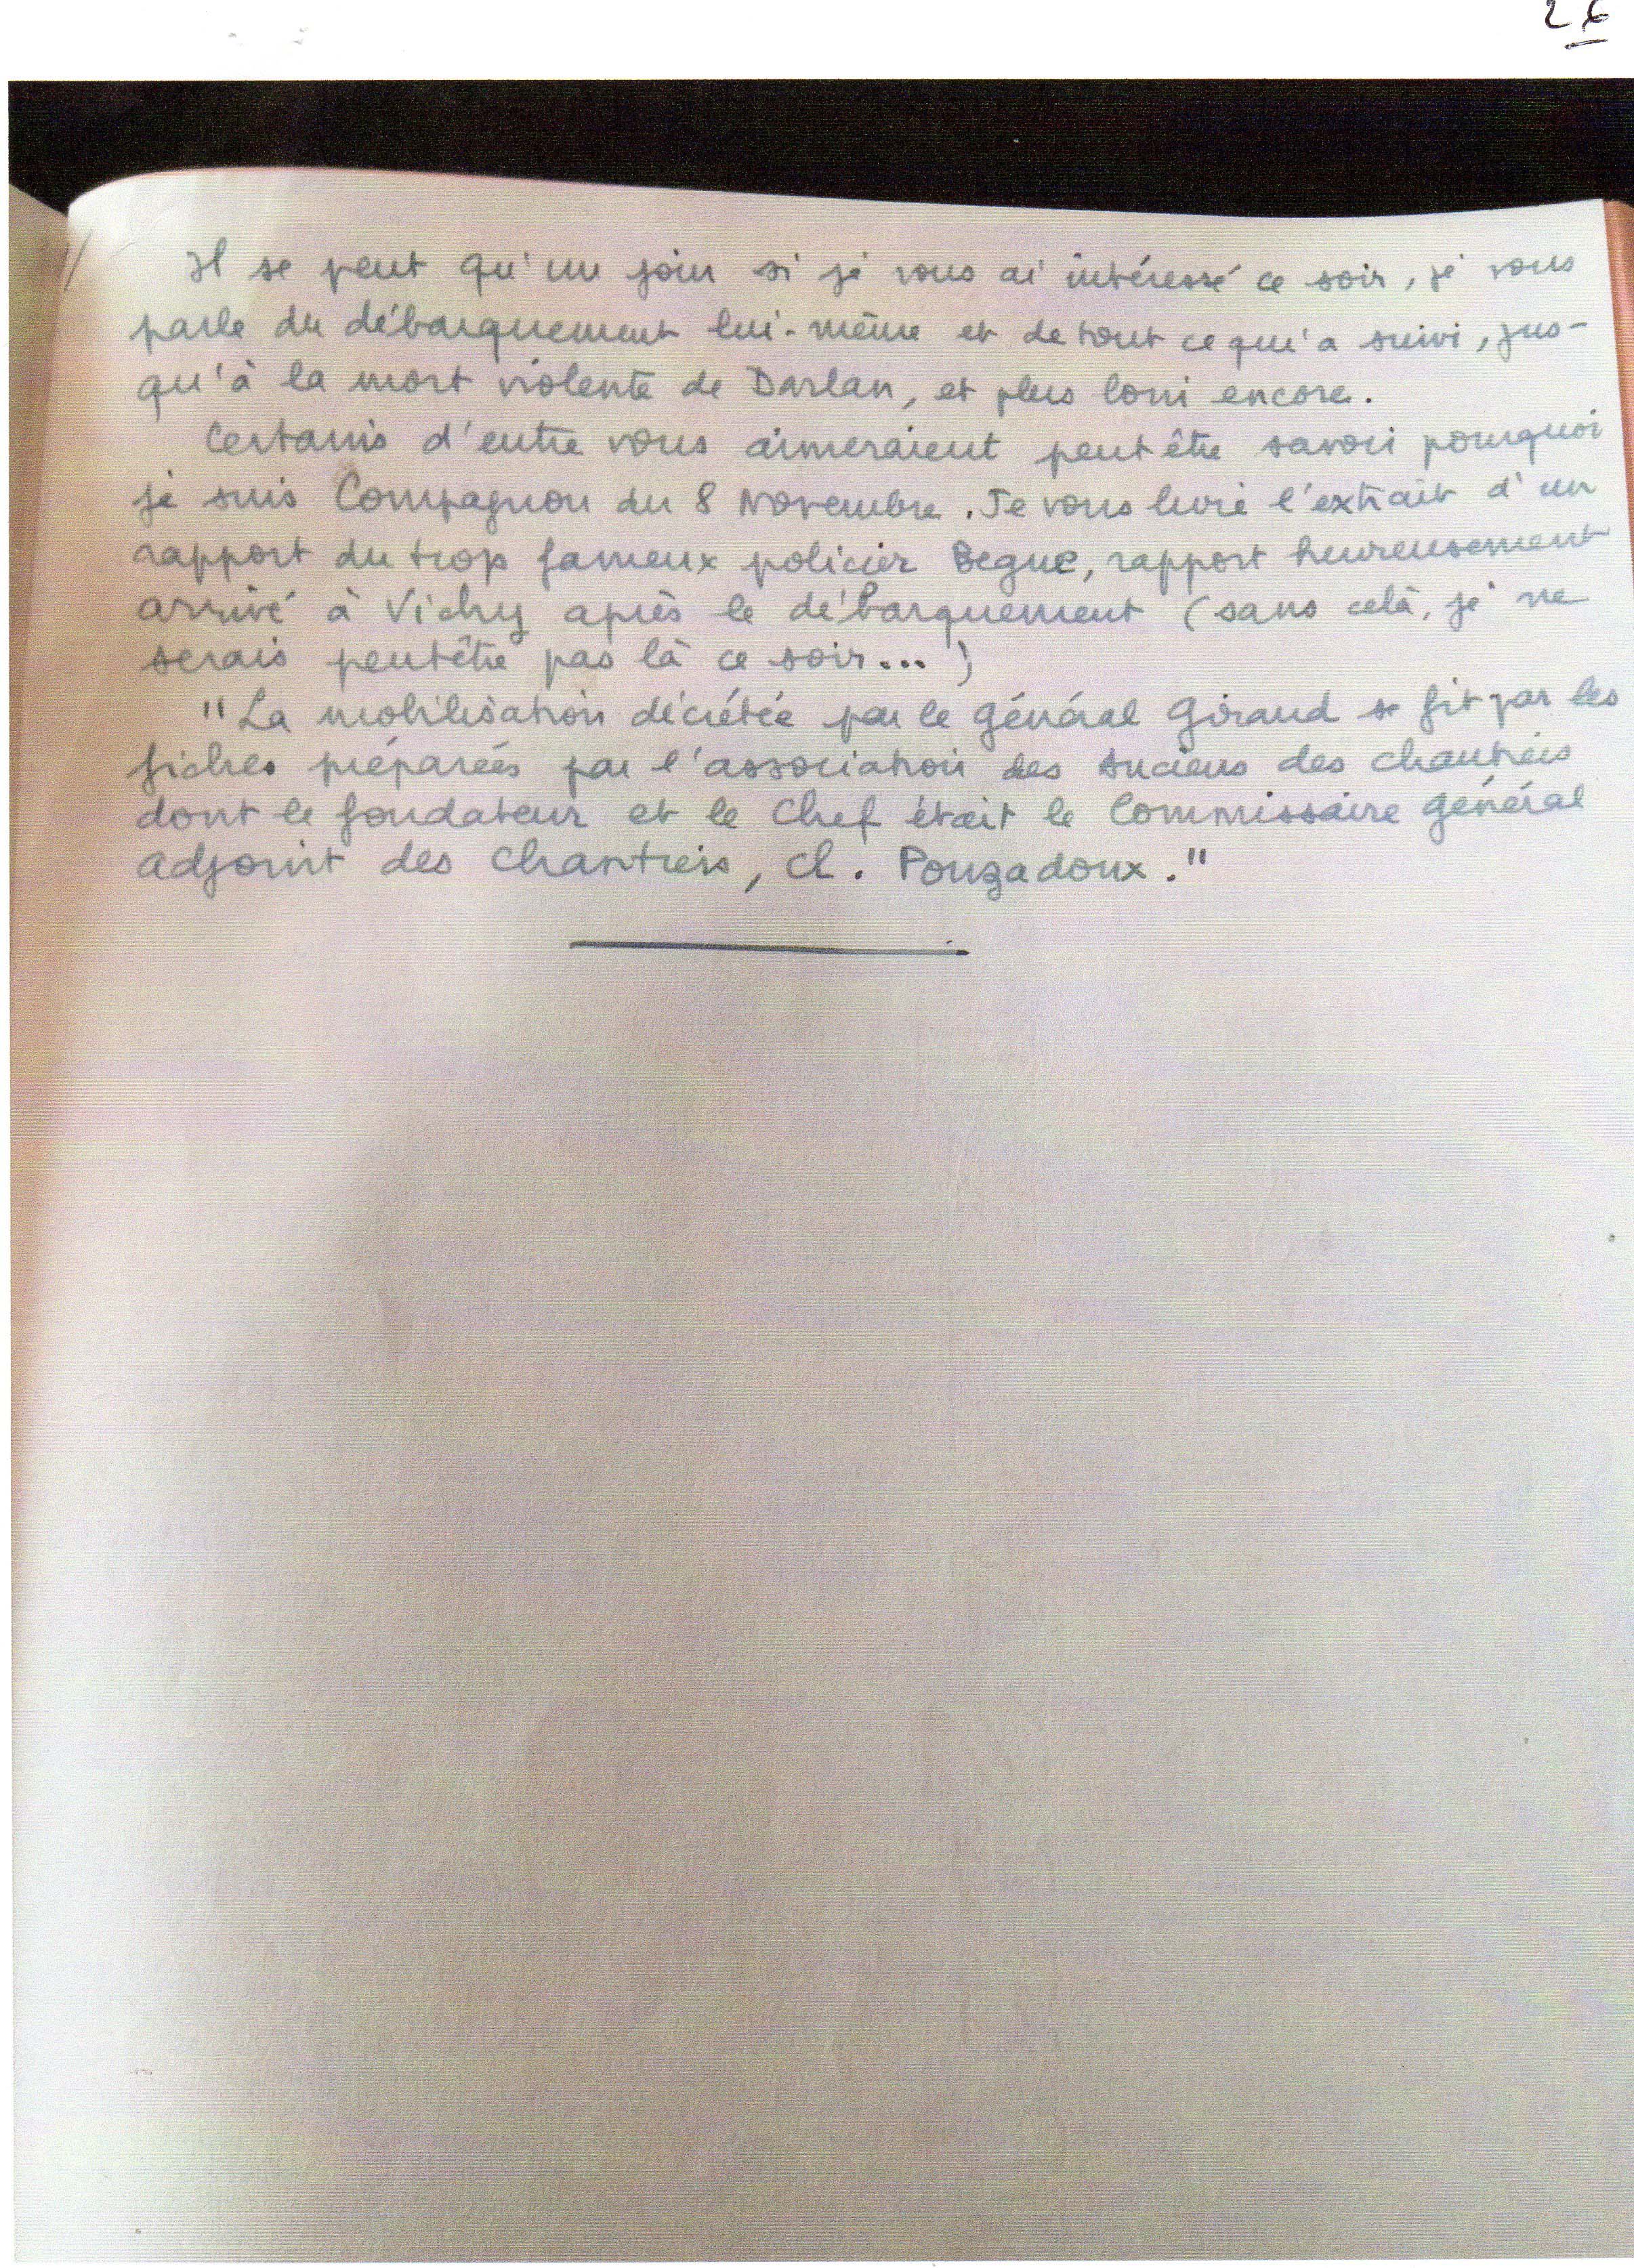 26
Il se peut qu'un jour si je vous ai intéressé ce soir, je vous
parle du débarquement lui-même et de tout ce qui a suivi, jus-
qu'à la mort violente de Darlan, et plus loin encore.
Certains d'entre vous aimeraient peut être savoir pourquoi
je suis Compagnon du 8 Novembre. Je vous livre l'extrait d'un
rapport du trop fameux policier Begue, rapport heureusement
arrivé à Vichy après le débarquement (sans celà, je ne
serais peut être pas là ce soir...)
"La mobilisation décrétée par le Général Giraud se fit par les
fiches préparées par l'association des anciens des chantiers
dont le fondateur et le Chef était le Commissaire Général
adjoint des Chantiers, Cl. Pouzadoux."